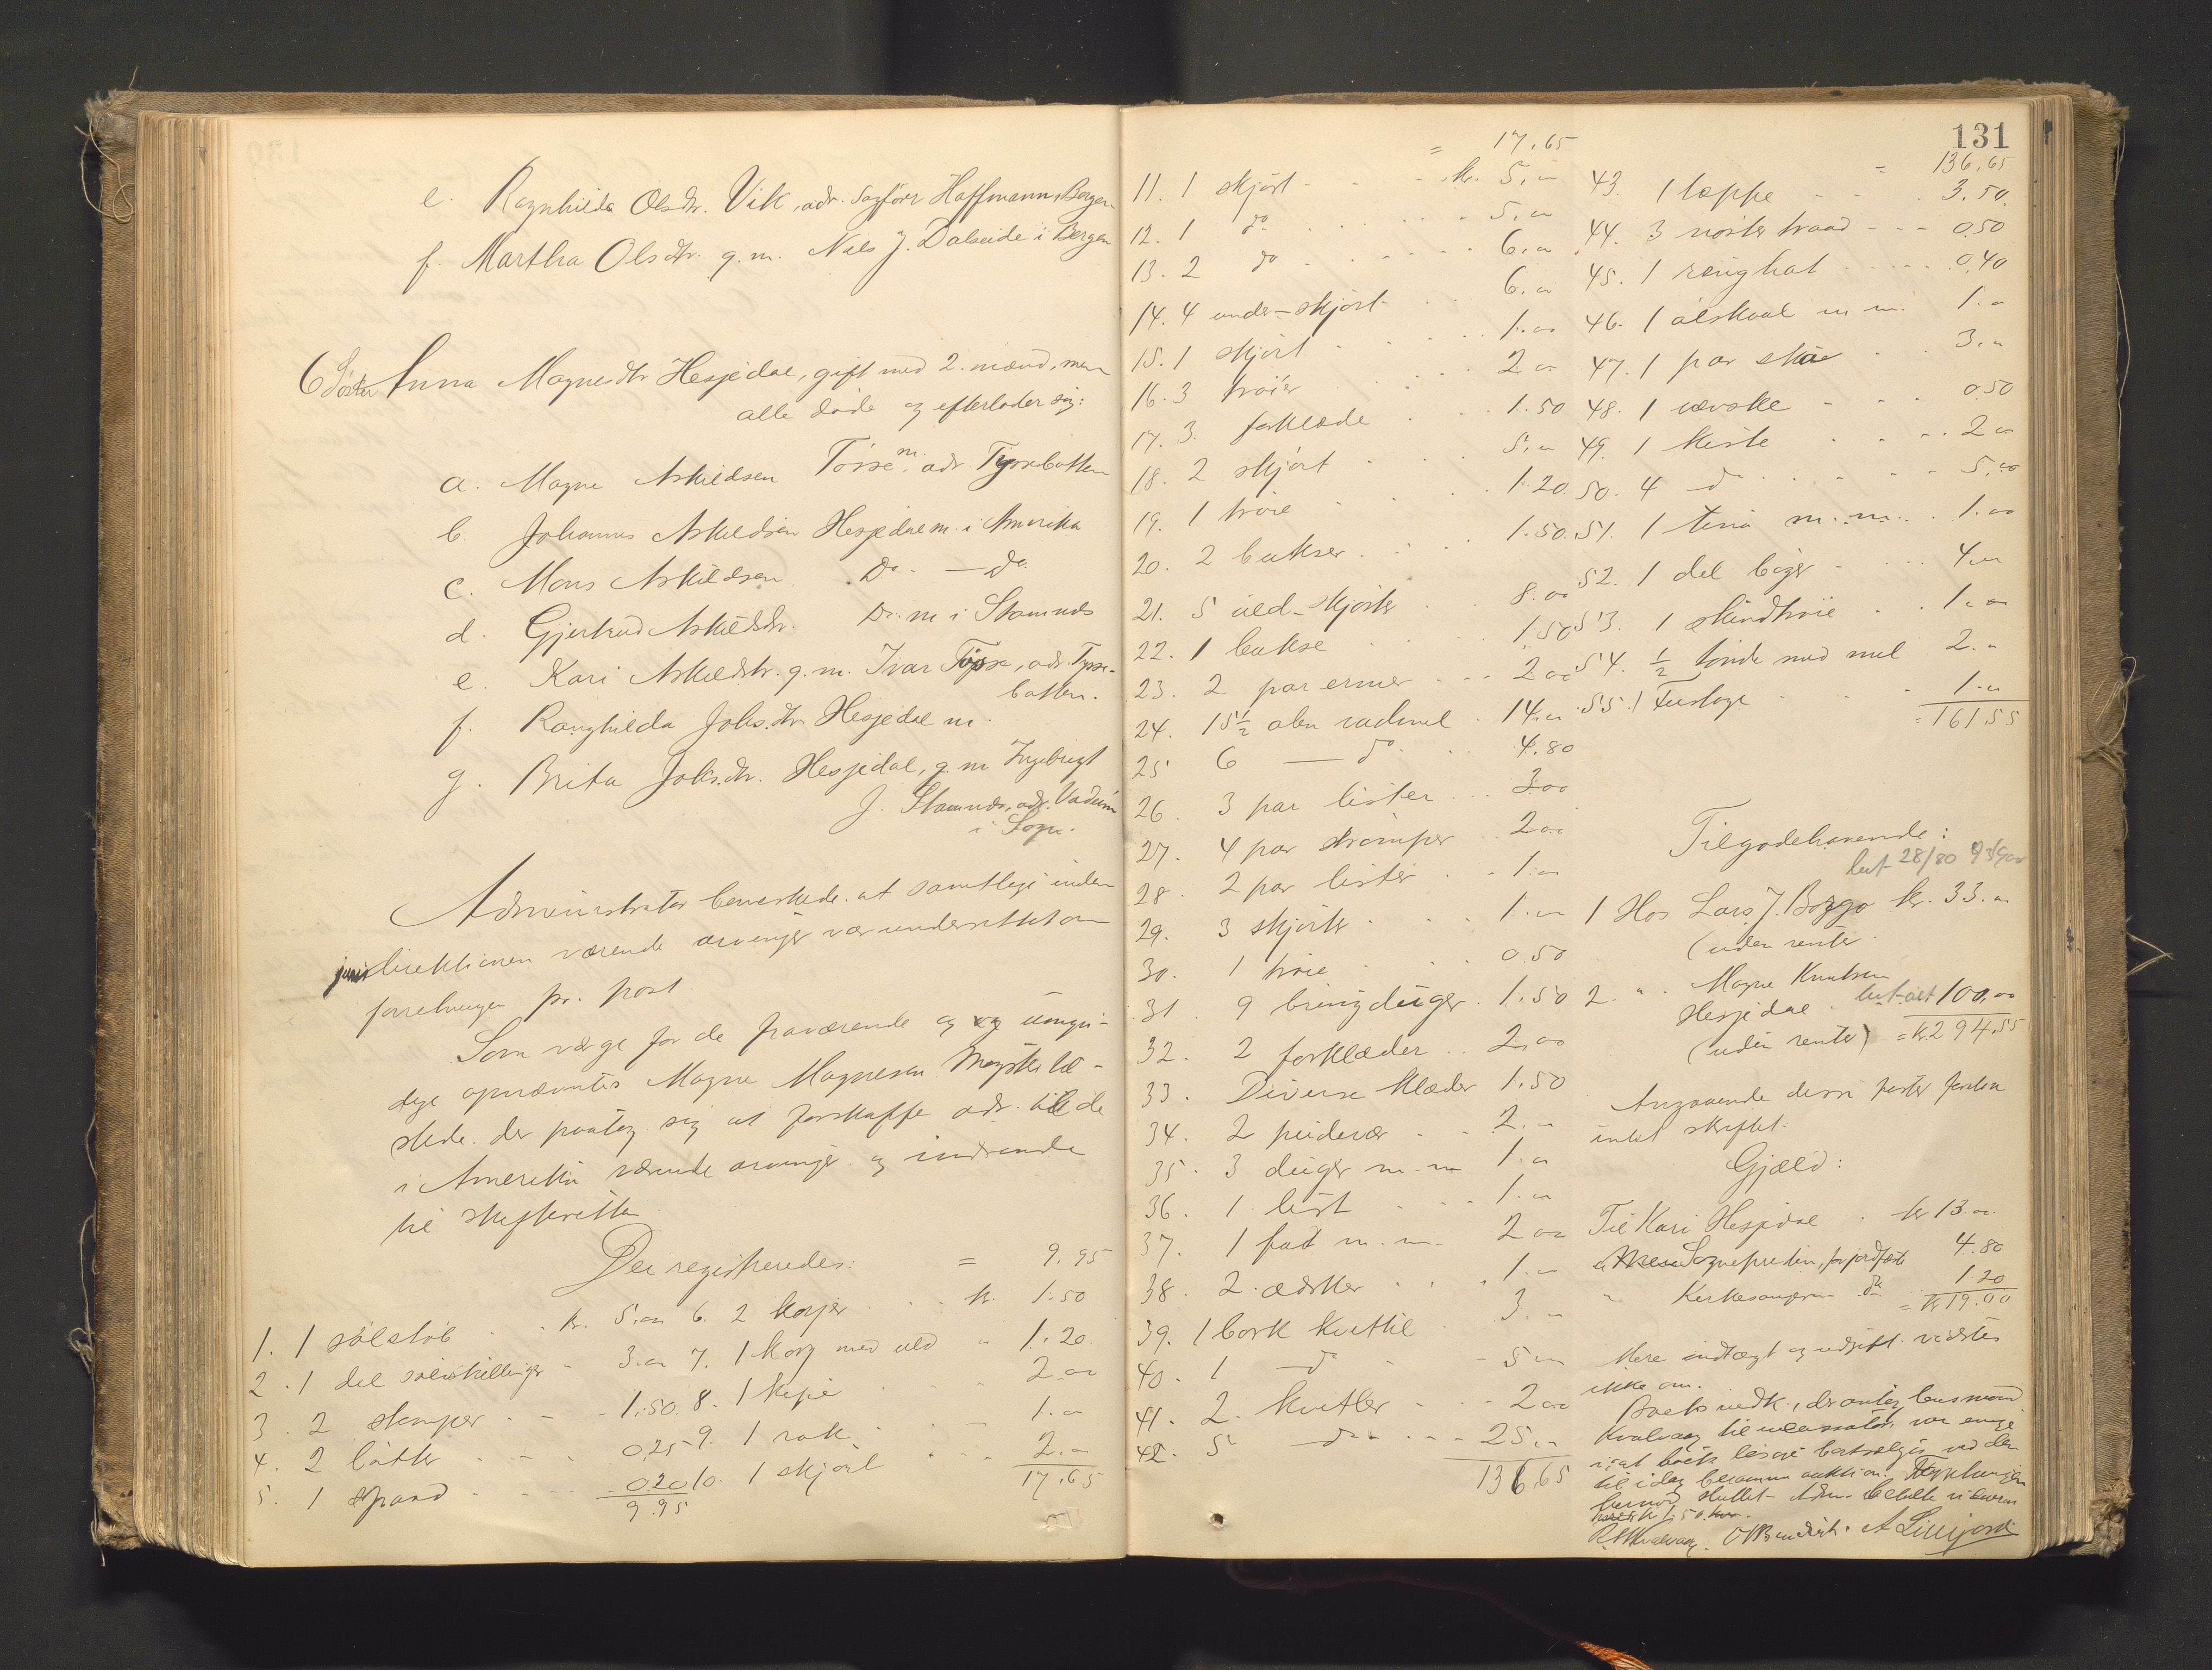 e. Ragnhilda Olsdtr. Vik, adr. Sagfører Hoffmann, Bergen.
f. Martha Olsdtr. g.m. Nils J. Dalseide i Bergen
6 Søster Anna Magnesdtr Hesjedal, gift med 2. mænd, men
alle døde og efterlader sig:
a. Magne Askildsen Tosse m. adr Tyssebotten
b. Johannes Askildsen Hesjedal m. i Amerika
c. Mons Askildsen Do. — do.
d. Gjertrud Askildsdtr. Do. m i Stamnes
e. Kari Askildsdtr. g.m. Ivar Tosse, adr. Tysse-
botten.
f. Ranghilda Johs.dtr Hesjedal m.
g. Brita Johs.dtr. Hesjedal, g m Ingebrigt
J. Stamnes, adr. Vadeim
i Sogn.
Administrator bemerkede at samtlige inden
jurisdiktionen værende arvinger var underrettet om
forretningen pr. post.
Som værge for de fraværende og umyn-
dige opnævntes Magne Magnesen
stede. der paatog sig at forskaffe adr. til de
i Amerika værende arvinger og indsende
til skifteretten
Der registreredes: = 9.95
1. 1 sølstøb . . kr. 5.00 6. 2 korjer . . kr. 1.50
2. 1 del sølvskillinger " 3.00 7. 1 korg med uld " 1.20
3. 2 stamper . . 1.50 8. 1 kipe . . 2.00
4. 2 bøtter . . 0.25 9. 1 rok . . 1.00
5. 1 spand . . 0.20 10. 1 skjørt . . 2.00
9.95 17.65
131
= 17.65
11. 1 skjørt . . kr. 5.00
12. 1 do . . 5.00
13. 2 do . . 6.00
14. 4 under-skjørt . . 6.00
15. 1 skjørt . . 1.00
16. 3 trøier . . 2.00
17. 3 forklæde . . 1.50
18. 2 skjørt . . 5.00
19. 1 trøie . . 1.20
20. 2 bukser . . 1.50
21. 5 uld-skjorter . . 8.00
22. 1 bukse . . 1.50
23. 2 par ermer . . 2.00
24. 15½ alen vadmel . 14.00
25 6 — do. . . 4.80
26. 3 par lister . . 3.00
27. 4 par strømper . 2.00
28. 2 par lister . . 1.00
29. 3 skjorter . . 1.00
30. 1 trøie . . 0.50
31. 9 bringduger . 1.50
32. 2 forklæder . . 2.00
33. Diverse klæder 1.50
34. 2 pudevar . . 2.00
35. 3 duger m.m 1.00
36. 1 list . . 1.00
37. 1 fad m.m. 2.00
38. 2 æsker . . 1.00
39. 1 bork kvittil . 3.00
40. 1 — do . . 5.00
41. 2 kvitler . . 2.00
42. 5 do . . 25.00
136.65
= 136.65
43. 1 teppe . . 3.50
44. 3 nøster traad . . 0.50
45. 1 . . 0.40
46. 1 ølskaal m m. 1.00
47. 1 par skoe . . 3.00
48. 1 væske . . 0.50
49. 1 kiste . . 2.00
50. 4 do . . 5.00
51. 1 tina m.m. . 1.00
52. 1 del bøger . . 4.00
53. 1 skindtrøie . . 1.00
54. ½ tønde med mel 2.00
55. 1 Fustage . . 1.00
= 161.55
Tilgodehavende:
1 Hos Lars J. Borge kr. 33.00
(uden renter
2. " Magne Knutsen
Hesjedal . 100.00
(uden renter) = kr. 294.55
Angaaende disse poster fandtes
intet skriftlig.
Gjæld:
Til Kari Hesjedal . kr 13.00
" Sognepresten, for jordfæst. 4.80
" Kirkesangeren do. 1.20
= kr 19.00
Mere indtægt og udgift vidstes
ikke om.
Boets vedk., der antog lensmand
Kvalvaag til incassator var enige
i at boets løsøre bortsælges ved den
til idag berammede auktion. Forretningen
hermed sluttet. Adm.
O Bendict. A Lillejord